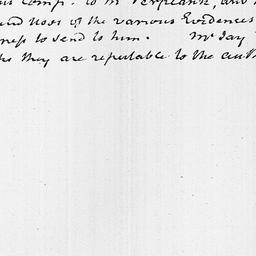 Comp.s to Mr Verplank, and
and Uses of the various Evidences
ness to send to him. Mr Jay
they are reputable to the auth